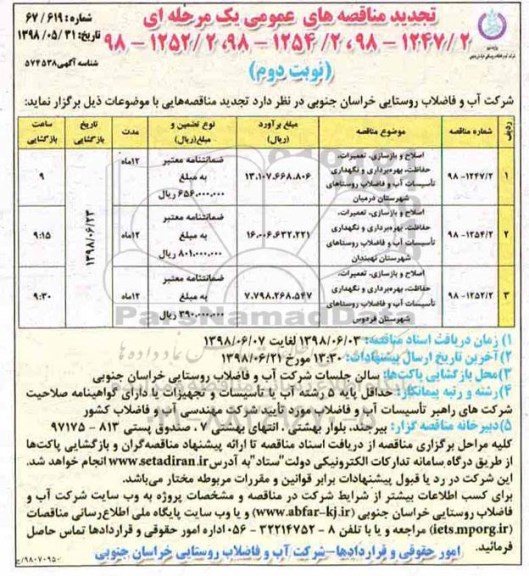 تجدید مناقصه های عمومی یک مرحله ای
۹۸ - ۱۲۵۲/۲ ،۹۸ - ۱۲۵۴/۲ ،۹۸ - ۱۲۴۷/۲
(نوبت دوم)
شماره: ۶۷/۶۱۹
تاریخ: ۱۳۹۸/۰۵/۳۱
شناسه آگهی: ۵۷۴۵۳۸
شرکت آب و فاضلاب روستایی خراسان جنوبی در نظر دارد تجدید مناقصه‌هایی با موضوعات ذیل برگزار نماید:
ردیف شماره مناقصه موضوع مناقصه مبلغ برآورد (ریال) نوع تضمین و مبلغ(ریال) مدت تاریخ بازگشایی ساعت بازگشایی
۱ ۹۸-۱۲۴۷/۲ اصلاح و بازسازی، تعمیرات، حفاظت، بهره‌برداری و نگهداری تأسیسات آب و فاضلاب روستاهای شهرستان درمیان ۱۳،۱۰۷،۶۶۸،۸۰۶ ضمانتنامه معتبر به مبلغ ۶۵۶،۰۰۰،۰۰۰ ریال ۱۲ماه ۱۳۹۸/۰۶/۲۳ ۹
۲ ۹۸-۱۲۵۴/۲ اصلاح و بازسازی، تعمیرات، حفاظت، بهره‌برداری و نگهداری تأسیسات آب و فاضلاب روستاهای شهرستان نهبندان ۱۶،۰۰۶،۶۳۲،۲۲۱ ضمانتنامه معتبر به مبلغ ۸۰۱،۰۰۰،۰۰۰ ریال ۱۲ماه ۹:۱۵
۳ ۹۸-۱۲۵۲/۲ اصلاح و بازسازی، تعمیرات، حفاظت، بهره‌برداری و نگهداری تأسیسات آب و فاضلاب روستاهای شهرستان فردوس ۷،۷۹۸،۲۶۸،۵۴۷ ضمانتنامه معتبر به مبلغ ۳۹۰،۰۰۰،۰۰۰ ریال ۱۲ماه ۹:۳۰
۱) زمان دریافت اسناد مناقصه: ۱۳۹۸/۰۶/۰۳ لغایت ۱۳۹۸/۰۶/۰۷
۲) آخرین تاریخ ارسال پیشنهادات: ۱۳:۳۰ مورخ ۱۳۹۸/۰۶/۲۱
۳) محل بازگشایی پاکت‌ها: سالن جلسات شرکت آب و فاضلاب روستایی خراسان جنوبی
۴) رشته و رتبه پیمانکار: حداقل پایه ۵ رشته آب یا تأسیسات و تجهیزات یا دارای گواهینامه صلاحیت
شرکت های راهبر تأسیسات آب و فاضلاب مورد تأیید شرکت مهندسی آب و فاضلاب کشور
۵) دبیرخانه مناقصه گزار: بیرجند، بلوار بهشتی، انتهای بهشتی ۷، صندوق پستی ۸۱۳ - ۹۷۱۷۵
کلیه مراحل برگزاری مناقصه از دریافت اسناد مناقصه تا ارائه پیشنهاد مناقصه‌گران و بازگشایی پاکت‌ها
از طریق درگاه سامانه تدارکات الکترونیکی دولت "ستاد" به آدرس www.setadiran.ir انجام خواهد شد.
این شرکت در رد یا قبول پیشنهادات برابر قوانین و مقررات مربوطه مختار می‌باشد.
برای کسب اطلاعات بیشتر از شرایط شرکت در مناقصه و مشخصات پروژه به وب سایت شرکت آب و
فاضلاب روستایی خراسان جنوبی (www.abfar-kj.ir) و یا وب سایت پایگاه ملی اطلاع‌رسانی مناقصات
(iets.mporg.ir) مراجعه و یا با تلفن ۸ - ۳۲۲۱۴۷۵۲ - ۰۵۶ اداره امور حقوقی و قراردادها تماس حاصل
فرمائید.
امور حقوقی و قراردادها-شرکت آب و فاضلاب روستایی خراسان جنوبی
ParsNamadData